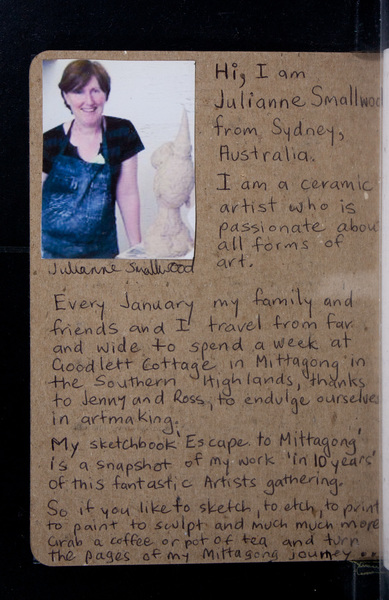 Hi, I am
Julianne Smallwood
from Sydney,
Australia.
I am a ceramic
artist who is
passionate about
all forms of
art.
Julianne Smallwood
Every January my family and
friends and I travel from far
and wide to spend a week at
Goodlett Cottage in Mittagong in
the Southern Highlands, thanks
to Jenny and Ross, to endulge ourselves
in artmaking.
My sketchbook 'Escape to Mittagong'
is a snapshot of my work 'in 10 years'
of this fantastic Artists gathering.
So if you like to sketch, to etch, to print
to paint to sculpt and much much more
Grab a coffee or pot of tea and turn
the pages of my Mittagong journey...